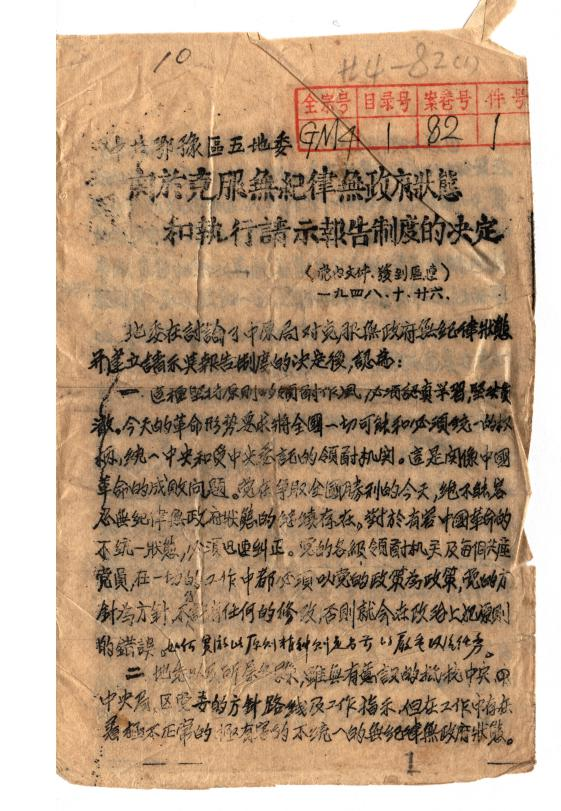 10
4-82(1)
全宗号 目录号 案卷号 件号
GM4 1 82 1
中共鄂豫區五地委
關於克服無紀律無政府狀態
和執行請示報告制度的决定
(党内文件·發到區)
一九四八·十·廿六·
地委在討論了中原局对克服無政府無紀律狀態
并建立請示報告制度的决定後,認為:
一 這種堅持原則的領酎作風,必須認真学習,貫
澈。今天的革命形势要求將全國一切可能和必須統一的权
柄,統一於中央和受中央委託的領酎机関。這是関係中國
革命的成敗问题。党在爭取全國勝利的今天,絕不能容
忍無紀律無政府狀態的継续存在,對於有害中國革命的
不統一狀態,必須迅速糾正。党的各級領酎机关及每個共產
党員,在一切的工作中都必須以党的政策為政策,党的方
針為方針,不許有任何的修改,否則就会在政治上犯原則
的錯誤。
二 地委以所屬,雖無有意識的抵抗中央
中央局、區党委的方針路线及工作指示,但在工作中存在
着極不正常的極有害的不統一的無紀律無政府狀態。
1